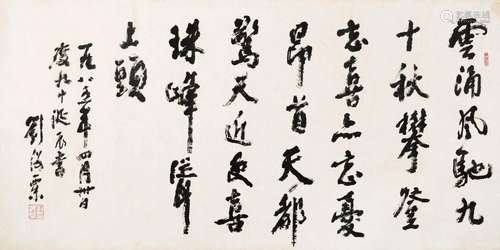 雲涌風馳九
十秋攀登
忘喜亦忘憂
昂首天都
驚天近更喜
珠峰聳
上頭
一九八五年四月卅日
九十誕辰書
劉海粟